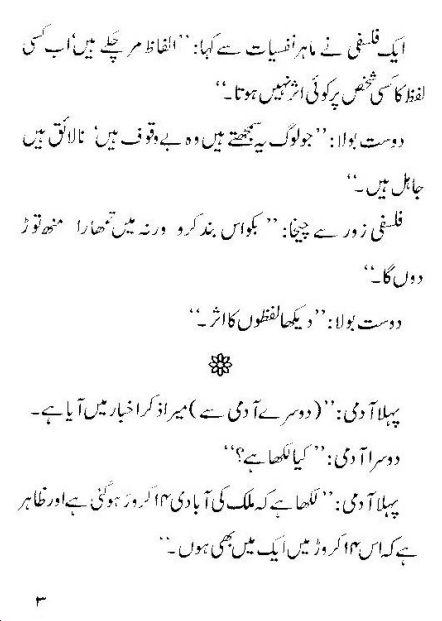 ایک فلسفی نے ماہر نفسیات سے کہا: ’’الفاظ مر چکے ہیں‘ اب کسی
لفظ کا کسی شخص پر کوئی اثر نہیں ہوتا۔‘‘
دوست بولا: ’’جو لوگ یہ سمجھتے ہیں وہ بے وقوف ہیں‘ نالائق ہیں
جاہل ہیں۔‘‘
فلسفی زور سے چیخا: ’’بکواس بند کرو ورنہ میں تمھارا منھ توڑ
دوں گا۔‘‘
دوست بولا: ’’دیکھا لفظوں کا اثر۔‘‘
پہلا آدمی: ’’(دوسرے آدمی سے) میرا ذکر اخبار میں آیا ہے۔
دوسرا آدمی: ’’کیا لکھا ہے؟‘‘
پہلا آدمی: ’’لکھا ہے کہ ملک کی آبادی ۱۴ کروڑ ہوگئی ہے اور ظاہر
ہے کہ اس ۱۴ کروڑ میں ایک میں بھی ہوں۔‘‘
۳